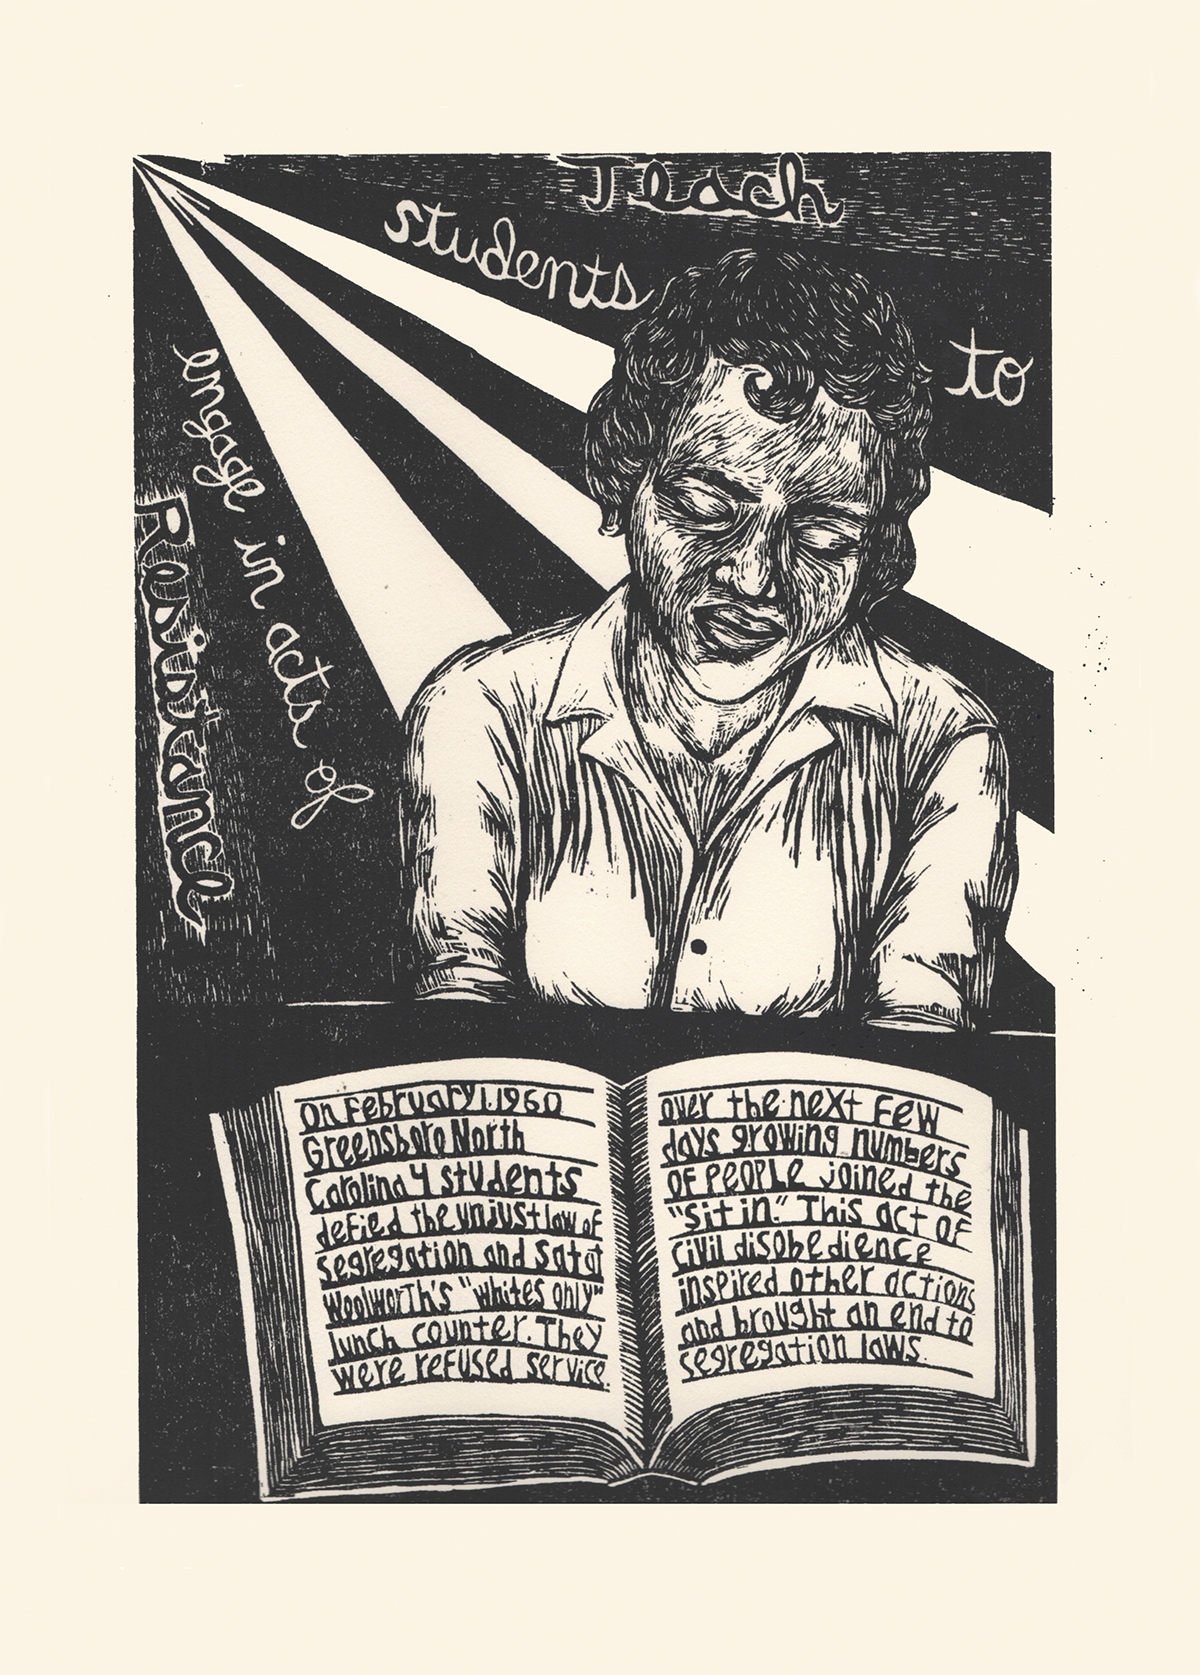 Teach
students
to
engage in acts of
Resistance
On February 1, 1960
Greensboro North
Carolina 4 students
defied the unjust law of
segregation and sat at
Woolworth's "whites only"
lunch counter. They
were refused service.
over the next few
days growing numbers
of people joined the
"sit in." This act of
civil disobedience
inspired other actions
and brought an end to
segregation laws.